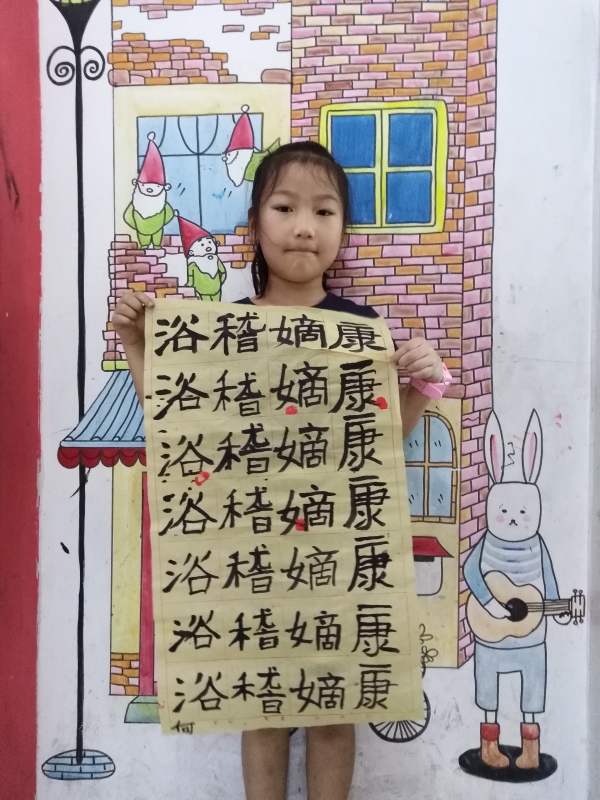 浴稽嫡康
浴稽嫡康
浴稽嫡康
浴稽嫡康
浴稽嫡康
浴稽嫡康
浴稽嫡康
何